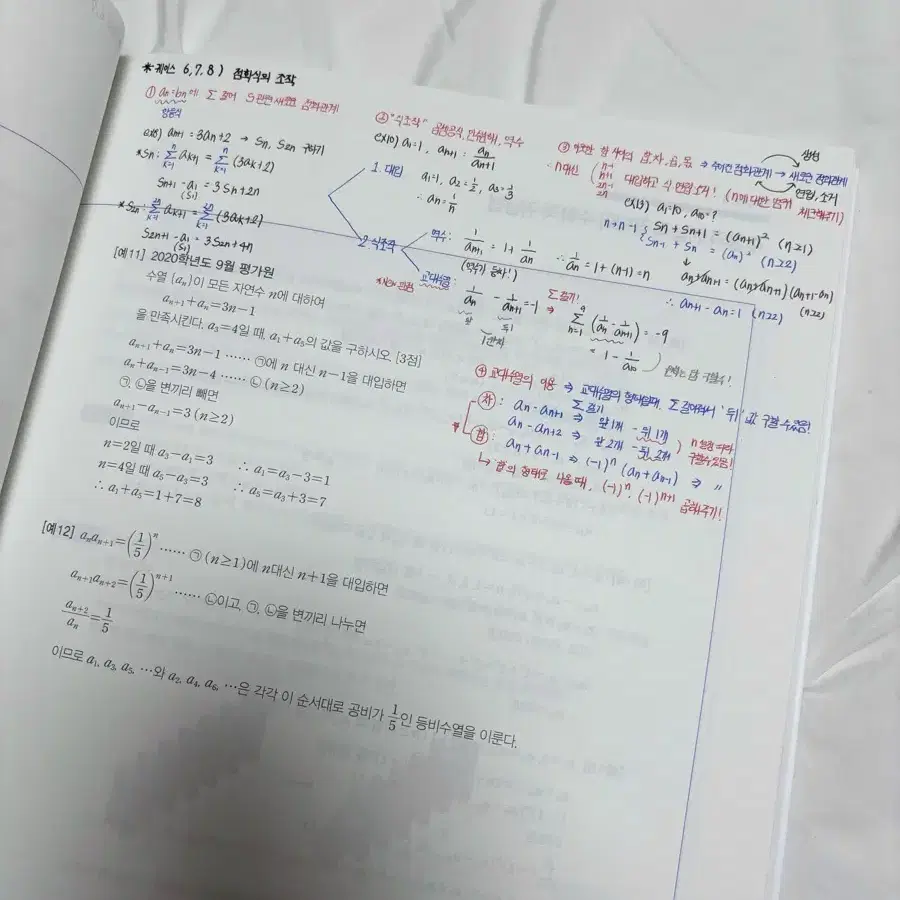 * 케이스 6, 7, 8) 점화식의 조작
① an=bn에 Σ 걸어 S관련 새로운 점화관계
항등식
ex8) an+1 = 3an+2 → Sn, S2n 구하기
*Sn: Σ(k=1→n) ak+1 = Σ(k=1→n) (3ak+2)
Sn+1 - a1 = 3Sn+2n
(S1)
*S2n: Σ(k=1→2n) ak+1 = Σ(k=1→2n) (3ak+2)
S2n+1 - a1 = 3S2n+4n
(S1)
② "식조작"
ex10) a1=1, an+1 = an/(an+1)
1. 대입
a1=1, a2=1/2, a3=1/3
∴ an = 1/n
2. 식조작
역수: 1/an+1 = 1 + 1/an ∴ 1/an = 1+(n-1)=n
(역수가 등차!)
교대수열: 1/an - 1/an+1 = -1 ⇒ Σ(n=1→9) (1/an - 1/an+1) = -9
Σ걸기!
앞 뒤
1칸차
= 1 - 1/a10
⇒ 주어진 점화관계 → 새로운 점화관계
생성
연립, 소거
n대신 n-1 n+1 2n-1 2n 대입하고 식 연립, 소거! (n에 대한 범위 체크해주기)
ex9) a1=10, a10=?
n→n-1 Sn + Sn+1 = (an+1)² (n≥1)
Sn-1 + Sn = (an)² (n≥2)
↓
an+an+1 = (an+an+1)(an+1-an) (n≥2)
∴ an+1 - an = 1 (n≥2)
④ 교대수열의 이용 ⇒ 교대수열의 형태일때, Σ걸어줘서 '뒤' 값 구할 수 있음!
Σ걸기
차: an - an+1 ⇒ 앞1개 - 뒤1개
an - an+2 ⇒ 앞2개 - 뒤2개
구할수있음!
합: an + an-1 ⇒ (-1)ⁿ (an+an-1) ⇒ 〃
↳ 합의 형태로 나올때, (-1)ⁿ, (-1)ⁿ⁺¹ 곱해주기!
[예11] 2020학년도 9월 평가원
수열 {an}이 모든 자연수 n에 대하여
an+1+an=3n-1
을 만족시킨다. a3=4일 때, a1+a5의 값을 구하시오. [3점]
an+1+an=3n-1 …… ㉠에 n 대신 n-1을 대입하면
an+an-1=3n-4 …… ㉡ (n≥2)
㉠, ㉡을 변끼리 빼면
an+1-an-1=3 (n≥2)
이므로
n=2일 때 a3-a1=3 ∴ a1=a3-3=1
n=4일 때 a5-a3=3 ∴ a5=a3+3=7
∴ a1+a5=1+7=8
[예12] anan+1=(1/5)ⁿ …… ㉠ (n≥1)에 n대신 n+1을 대입하면
an+1an+2=(1/5)ⁿ⁺¹ …… ㉡이고, ㉠, ㉡을 변끼리 나누면
an+2/an=1/5
이므로 a1, a3, a5, …와 a2, a4, a6, …은 각각 이 순서대로 공비가 1/5인 등비수열을 이룬다.